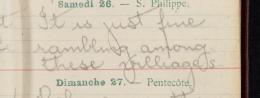 Samedi 26. — S. Philippe.
It is just fine
rambling among
these villages
Dimanche 27. — Pentecôte.